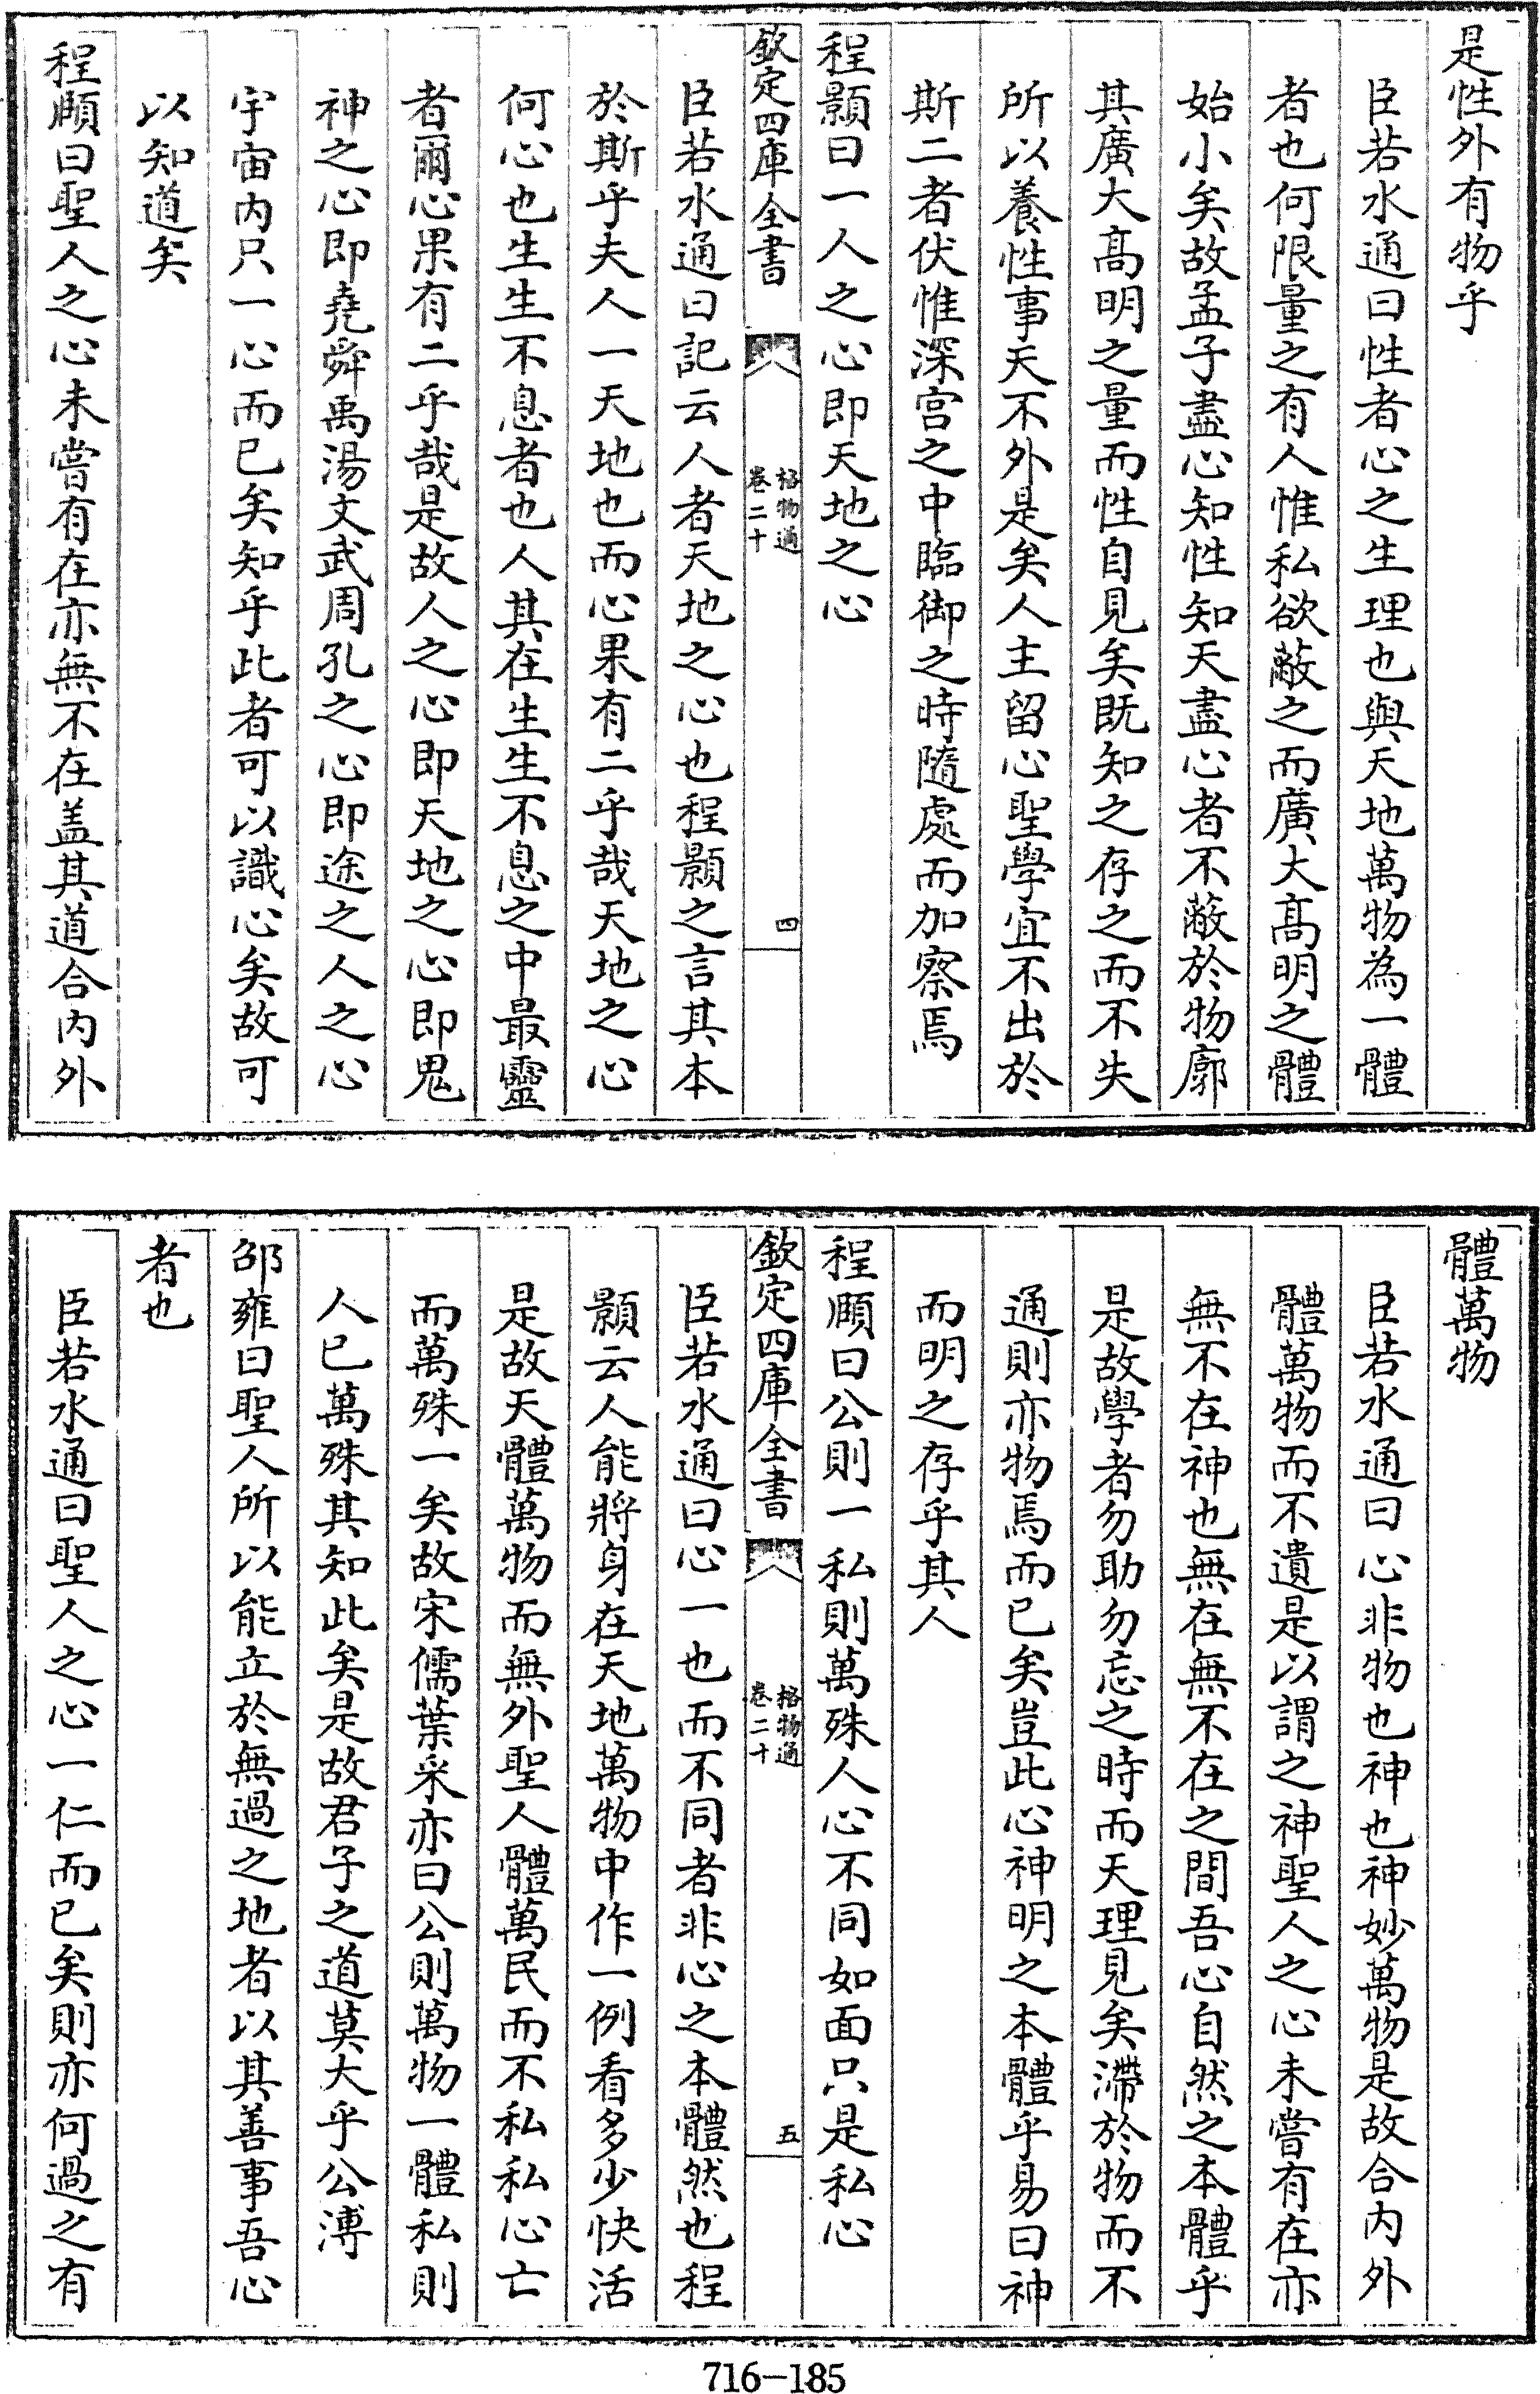 是性外有物乎
臣若水通曰性者心之生理也與天地萬物為一體
者也何限量之有人惟私欲蔽之而廣大髙明之體
始小矣故孟子盡心知性知天盡心者不蔽於物廓
其廣大髙明之量而性自見矣既知之存之而不失
所以養性事天不外是矣人主留心聖學宜不出於
斯二者伏惟深宫之中臨御之時隨處而加察焉
程顥曰一人之心即天地之心
欽定四庫全書
格物通
卷二十
四
臣若水通曰記云人者天地之心也程顥之言其本
於斯乎夫人一天地也而心果有二乎哉天地之心
何心也生生不息者也人其在生生不息之中最靈
者爾心果有二乎哉是故人之心即天地之心即鬼
神之心即堯舜禹湯文武周孔之心即途之人之心
宇宙内只一心而已矣知乎此者可以識心矣故可
以知道矣
程頤曰聖人之心未嘗有在亦無不在盖其道合内外
體萬物
臣若水通曰心非物也神也神妙萬物是故合内外
體萬物而不遺是以謂之神聖人之心未嘗有在亦
無不在神也無在無不在之間吾心自然之本體乎
是故學者勿助勿忘之時而天理見矣滯於物而不
通則亦物焉而已矣豈此心神明之本體乎易曰神
而明之存乎其人
程頤曰公則一私則萬殊人心不同如面只是私心
欽定四庫全書
格物通
卷二十
五
臣若水通曰心一也而不同者非心之本體然也程
顥云人能將身在天地萬物中作一例看多少快活
是故天體萬物而無外聖人體萬民而不私私心亡
而萬殊一矣故宋儒葉采亦曰公則萬物一體私則
人已萬殊其知此矣是故君子之道莫大乎公溥
邵雍曰聖人所以能立於無過之地者以其善事吾心
者也
臣若水通曰聖人之心一仁而已矣則亦何過之有
716-185